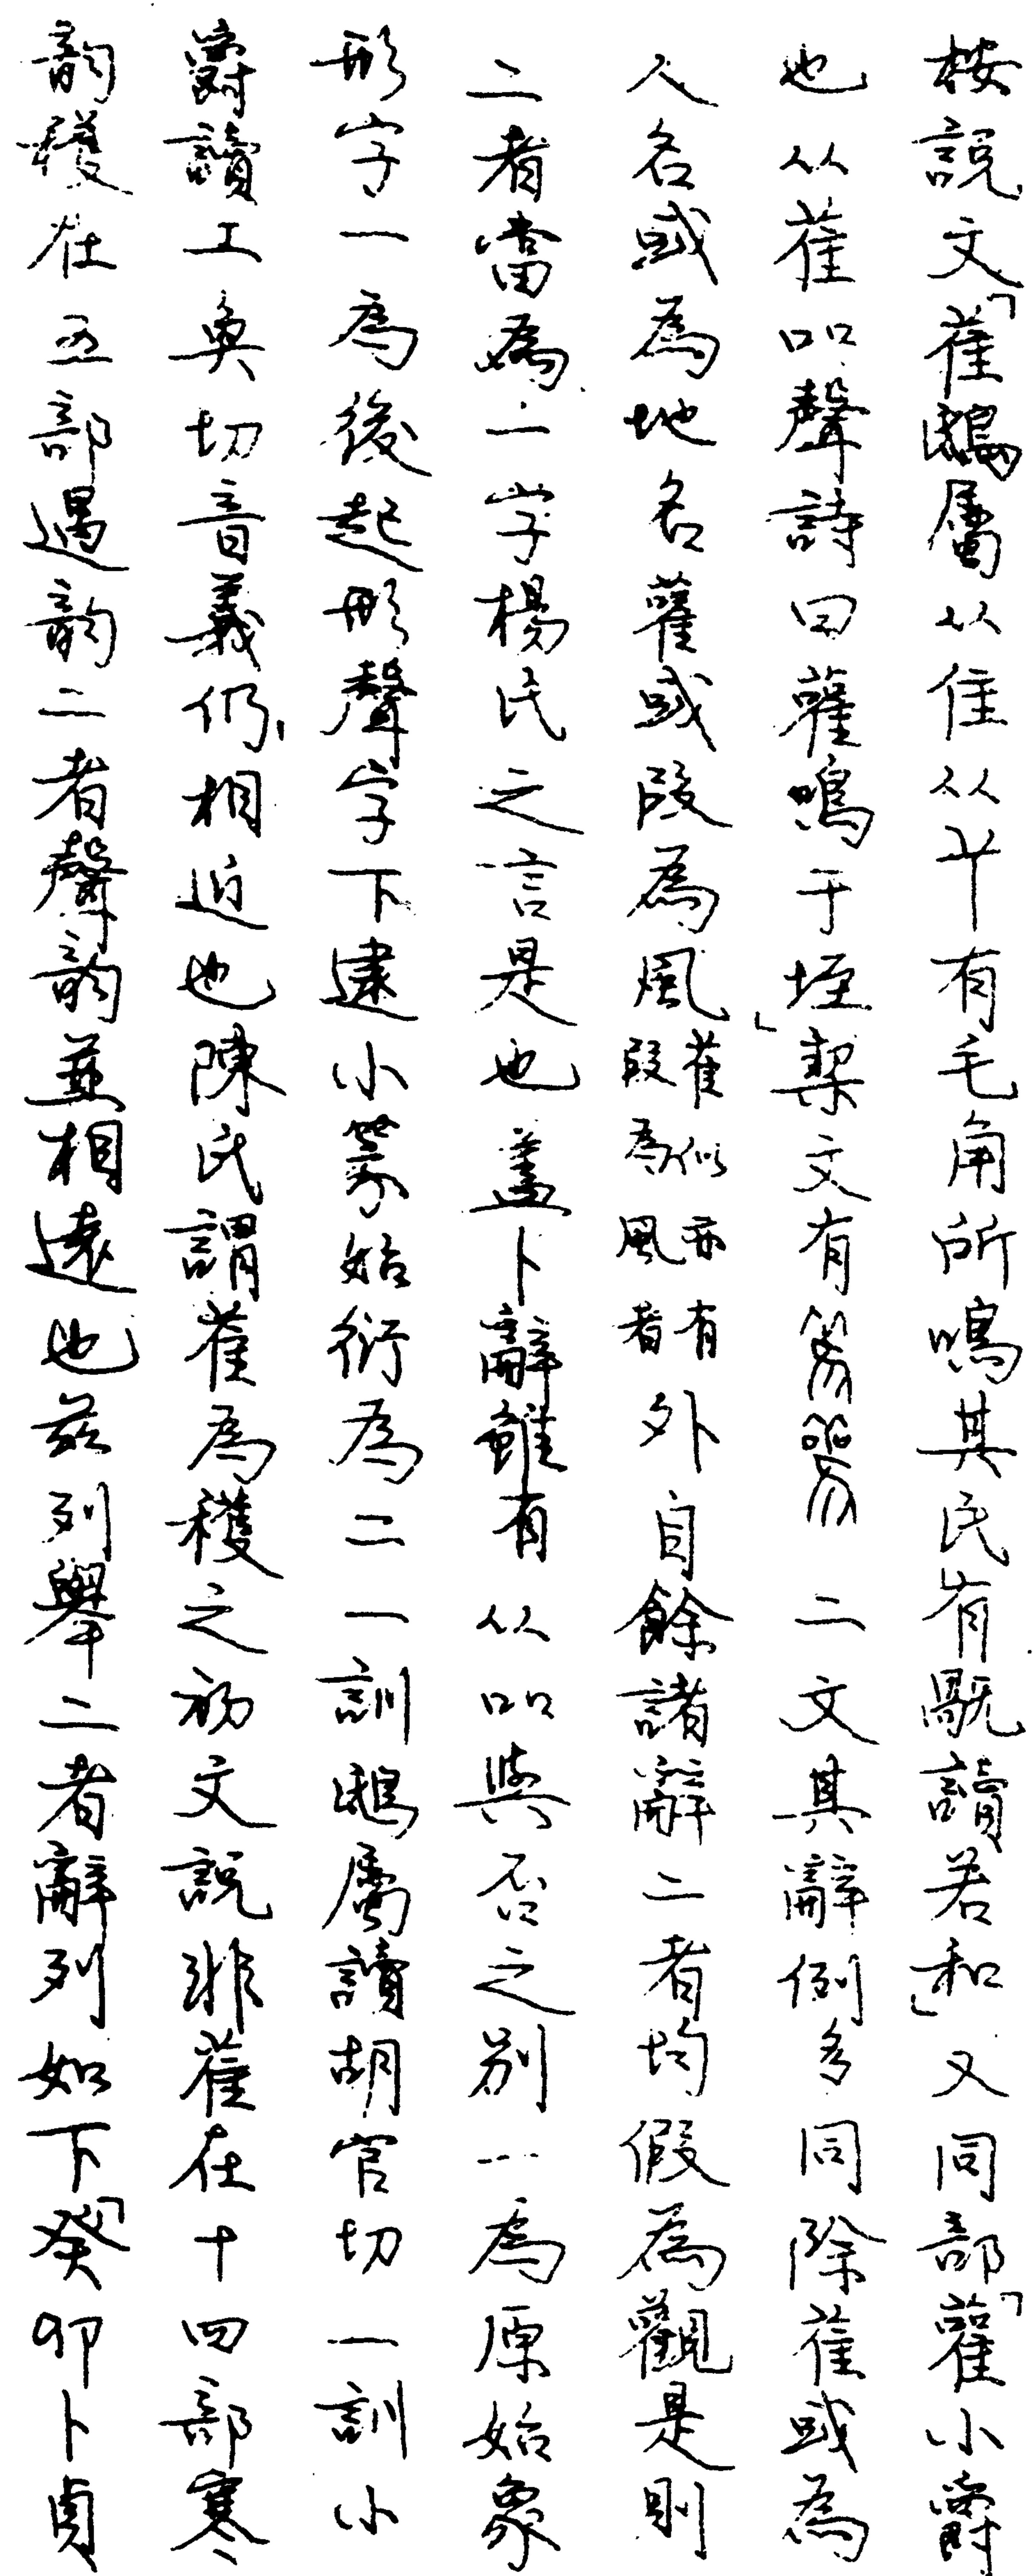 桉說文「萑鴟屬从隹从𦫳有毛角所鳴其民有𣄴讀若和」又同部「雚小爵
也从萑吅聲詩曰雚鳴于垤」栔文有二文其辭例多同除萑或為
人名或為地名雚或叚為風萑似亦有叚為風者外自餘諸辭二者均假為觀是則
二者當為一字楊氏之言是也蓋卜辭雖有从吅與否之別一為原始象
形字一為後起形聲字下逮小篆始衍為二一訓鴟屬讀胡官切一訓小
爵讀工奐切音義仍相近也陳氏謂萑為穫之初文說非萑在十四部寒
韵穫在五部遇韵二者聲韵並相遠也茲列舉二者辭列如下「癸卯卜貞